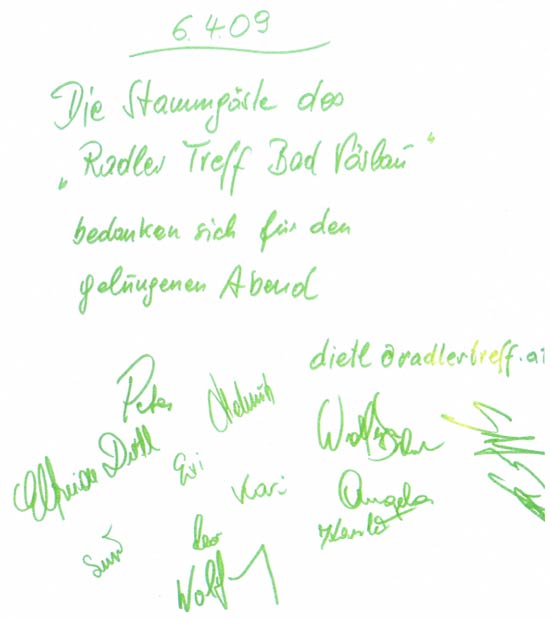 6.4.09
Die Stammgäste des
„Radler Treff Bad Vöslau"
bedanken sich für den
gelungenen Abend
dietl@radlertreff.at
Peter
Elfriede Dietl
Evi
Kari
Wolfgang
Angela
Susi
Leo
Wolf